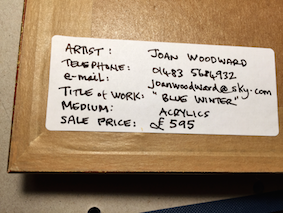 ARTIST: JOAN WOODWARD
TELEPHONE: 01483 5684932
e-mail: joanwoodward@sky.com
TITLE of WORK: "BLUE WINTER"
MEDIUM: ACRYLICS
SALE PRICE: £595